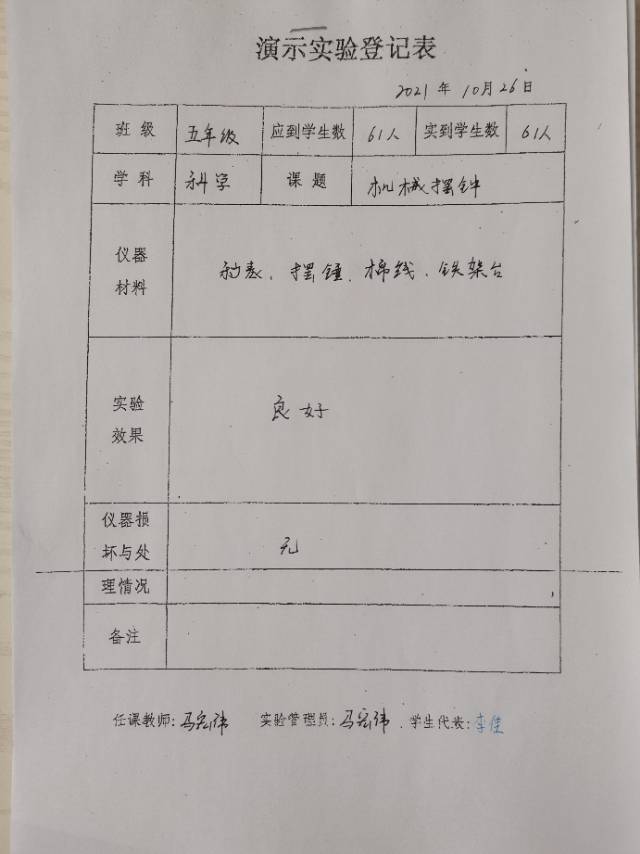 演示实验登记表
2021年10月26日
班级 五年级 应到学生数 61人 实到学生数 61人
学科 科学 课题 机械摆钟
仪器材料 秒表、摆锤、棉线、铁架台
实验效果 良好
仪器损坏与处理情况 无
备注
任课教师:马宏伟 实验管理员:马宏伟 学生代表:李佳